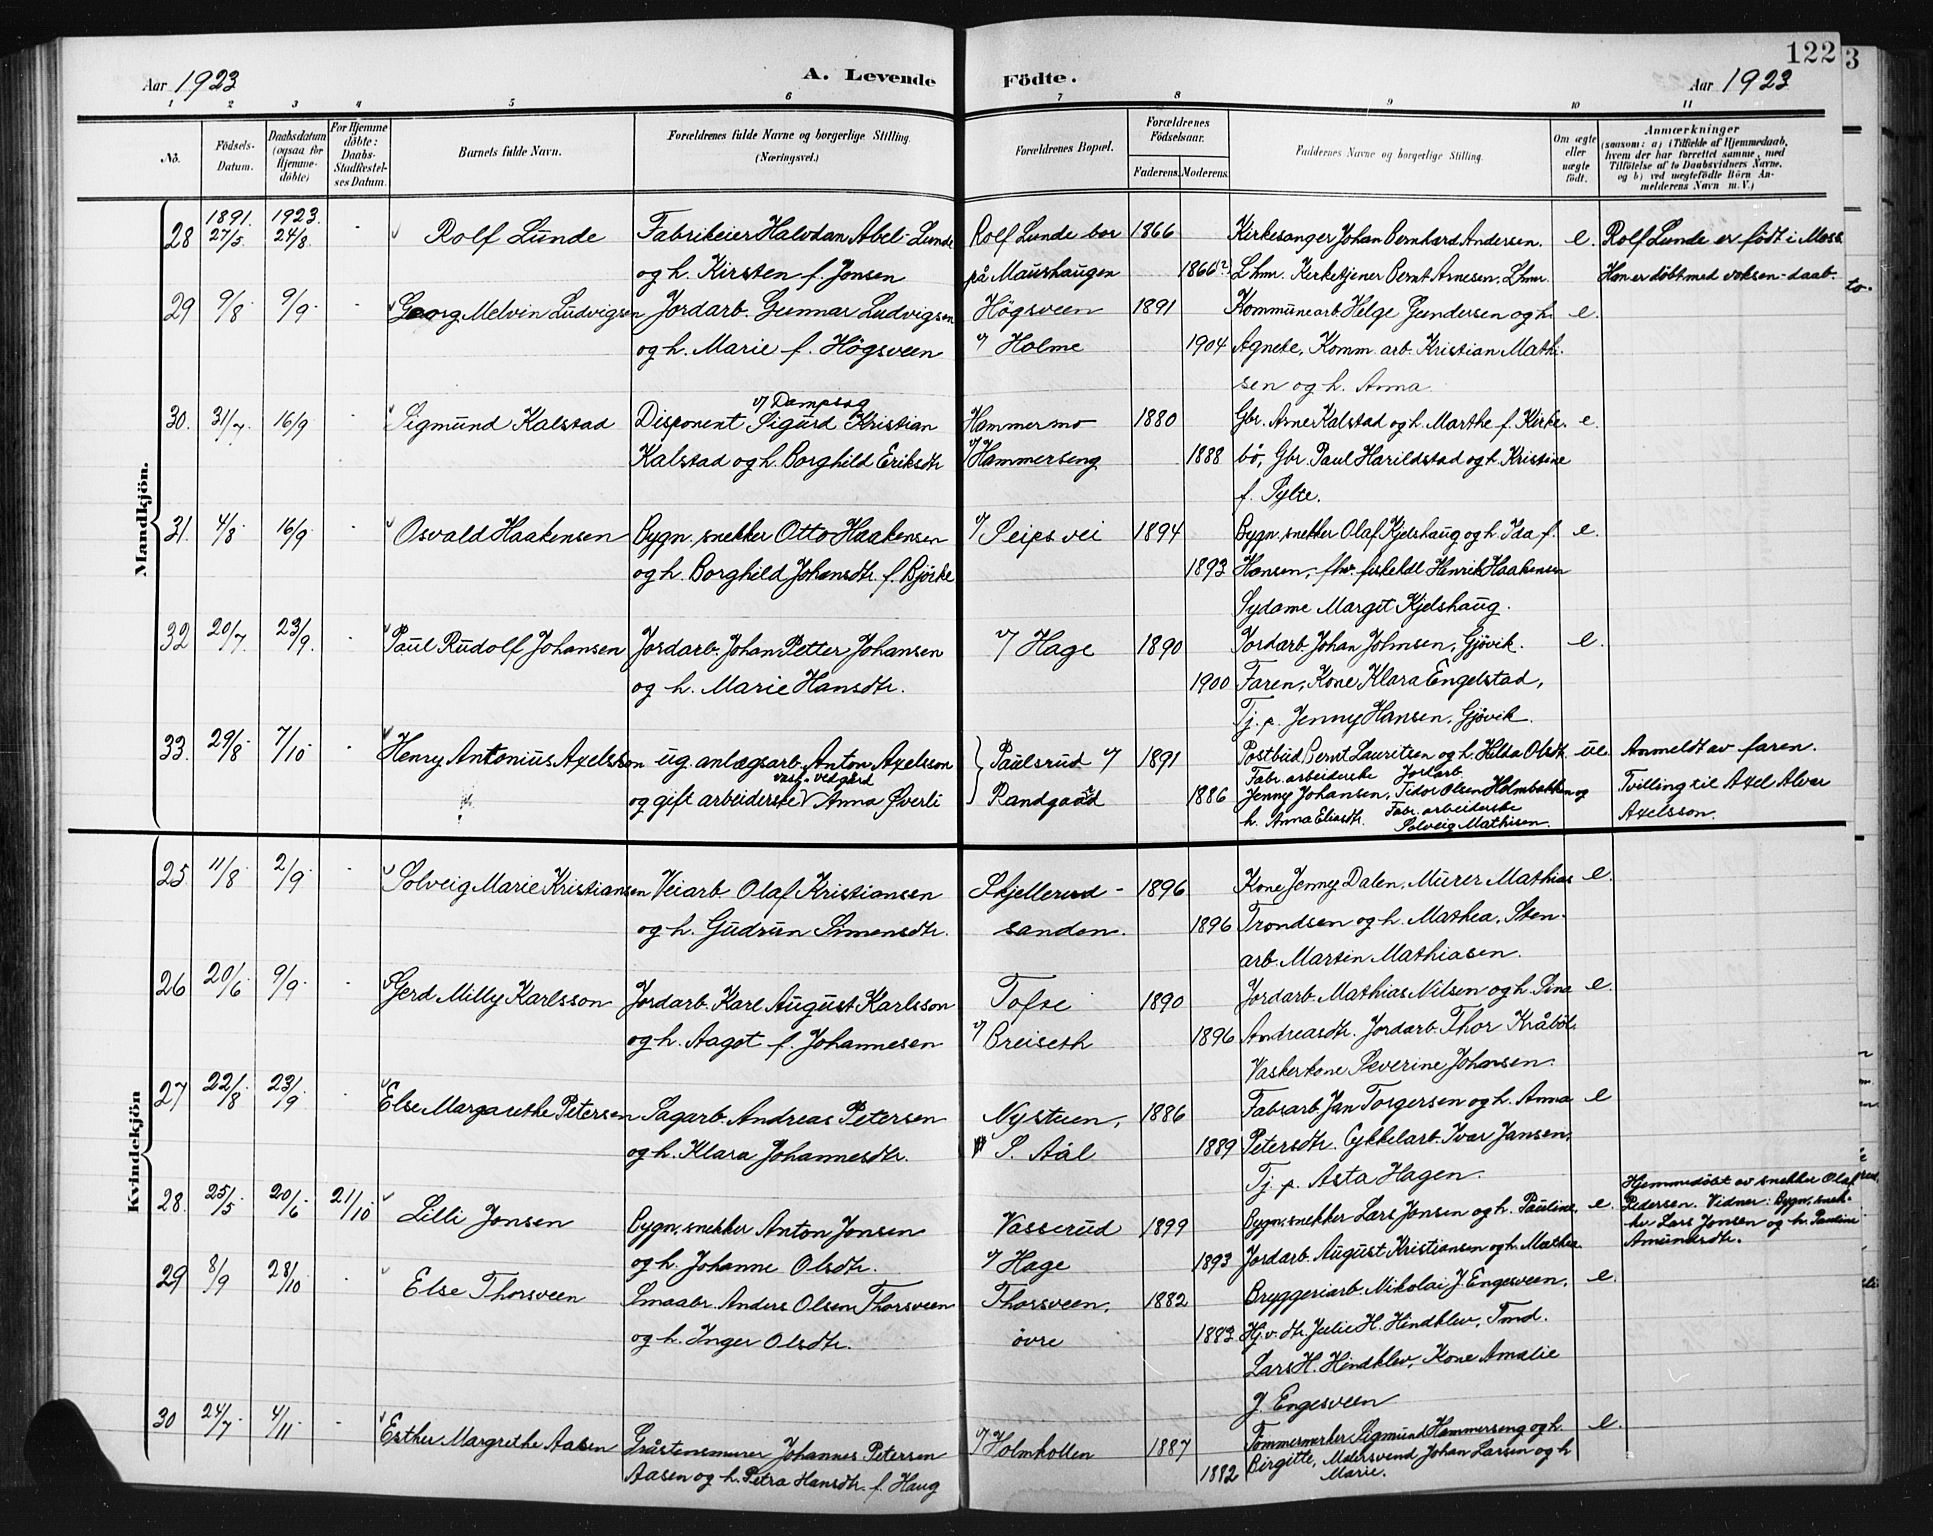 122
3
Aar 1923
A. Levende
Födte.
Aar 1923
1 2 3 4 5 6 7 8 9 10 11
No.
Födsels-
Datum.
Daabsdatum
(ogsaa for
Hjemme-
döbte)
For Hjemme
döbte:
Daabs-
Stadfæstel-
ses Datum.
Barnets fulde Navn.
Forældrenes fulde Navne og borgerlige Stilling.
(Næringsvei.)
Forældrenes Bopæl.
Forældrenes
Födselsaar.
Faderens.
Moderens.
Faddernes Navne og borgerlige Stilling.
Om ægte
eller
uægte
födt.
Anmærkninger
(saasom: a) i Tilfælde af Hjemmedaab,
hvem der har forrettet samme, med
Tilföielse af to Daabsvidners Navne.
og b) ved uægtefödte Börn An-
melderens Navn m. V.)
Mandkjön.
28 1891. 27/5 1923. 24/8 - Rolf Lunde Fabrikeier Halvdan Abel-Lunde Rolf Lunde bor 1866 Kirkesanger Johan Bernhard Andersen. e. Rolf Lunde er født i Moss.
og h. Kirsten f. Jensen på Maurhaugen 1866(?) Lhmr. Kirketjener Bernt Arnesen, Lhmr. Han er döbt med voksen-daab.
29 9/8 9/9 - Georg Melvin Ludvigsen Jordarb. Gunnar Ludvigsen Högsveen 1891 Kommunearb Helge Gundersen og h. e.
og h. Marie f. Högsveen v/ Holme 1904 Agnete, Komm. arb. Kristian Mathi-
sen og h. Anna.
v/ Dampsag
30. 31/7 16/9 - Sigmund Kalstad Disponent Sigurd Kristian Hammermo 1880 Gbr. Arne Kalstad og h. Marthe f. Kirke- e.
Kalstad og h. Borghild Eriksdtr v/ Hammerseng 1888 bö, Gbr. Paul Harildstad og h. Kristine
f. Sylte.
31. 4/8 16/9 - Osvald Haakensen Bygn. snekker Otto Haakensen v/ Seips vei 1894 Bygn. snekker Olaf Kjelshaug og h. Ida f. e.
og h. Borghild Johansdtr. f. Björke 1893 Hansen, fhv. fiskehdl Henrik Haakensen
Sydame Margit Kjelshaug.
32 20/7 23/9 - Paul Rudolf Johansen Jordarb. Johan Petter Johansen v/ Hage 1890 Jordarb. Johan Johnsen, Gjövik. e.
og h. Marie Hansdtr. 1900 Faren, Kone Klara Engelstad,
Tj. p. Jenny Hansen, Gjövik.
33. 29/8 7/10 - Henry Antonius Axelsson ug. anlægsarb. Anton Axelsson Paulsrud v/ 1891 Postbud Bernt Lauritsen og h. Hilda Olsdtr. ue. Anmeldt av faren.
og gift arbeiderske Anna Överli Randgaard 1886 Fabr. arbeiderske Jenny Johansen, Jordarb. Tidor Olsen Holmbakken og Tvilling til Axel Alvar
h. Anna Eliasdtr. Fabr. arbeiderske Solveig Mathisen. Axelsson.
Kvindekjön
25 11/8 2/9 - Solveig Marie Kristiansen Veiarb. Olaf Kristiansen Skjellerud- 1896 Kone Jenny Dalen, Murer Mathias e.
og h. Gudrun Simensdtr. sanden. 1896 Trondsen og h. Mathea, Sten-
arb. Martin Mathiasen.
26 20/6 9/9 - Gerd Milly Karlsson Jordarb. Karl August Karlsson Tofte 1890 Jordarb. Mathias Nilsen og h. Sina e.
og h. Aagot f. Johannesen v/ Breiseth 1896 Andreasdtr. Jordarb. Thor Kråböl.
Vaskerkone Severine Johnsen.
27 22/8 23/9 - Else Margarethe Petersen Sagarb. Andreas Petersen Nystuen, 1886 Fabrarb. Jan Torgersen og h. Anna e
og h. Klara Johannesdtr. S. Aål 1889 Petersdtr. Cykkelarb. Ivar Jansen,
Tj. p. Asta Hagen.
28. 25/5 20/6 21/10 Lilli Jonsen Bygn. snekker Anton Jonsen Vasserud 1899 Bygn. snekker Lars Jonsen og h. Pauline, e. Hjemmedöbt av snekker Olaf
Pedersen. Vidner: Bygn. snek-
ker Lars Jonsen og h. Pauline
Amundsdtr.
og h. Johanne Olsdtr. v/ Hage 1893 Jordarb. August Kristiansen og h. Mathea
29 8/9 28/10 - Else Thorsveen Smaabr. Anders Olsen Thorsveen Thorsveen, 1882 Bryggeriarb. Mikolai J. Engesveen, e.
og h. Inger Olsdtr. övre 1883 Hj. v. dtr. Julie H. Hindklev, Tmd.
Lars H. Hindklev, Kone Amalie
J. Engesveen
30 24/7 4/11 - Esther Margrethe Aasen Gråstensmurer Johannes Petersen v/ Holmkollen 1887 Tömmermerker Sigmund Hammerseng og h. e.
Aasen og h. Petra Hansdtr. f. Haug 1882 Birgitte, Malersvend Johan Larsen og h
Marie.